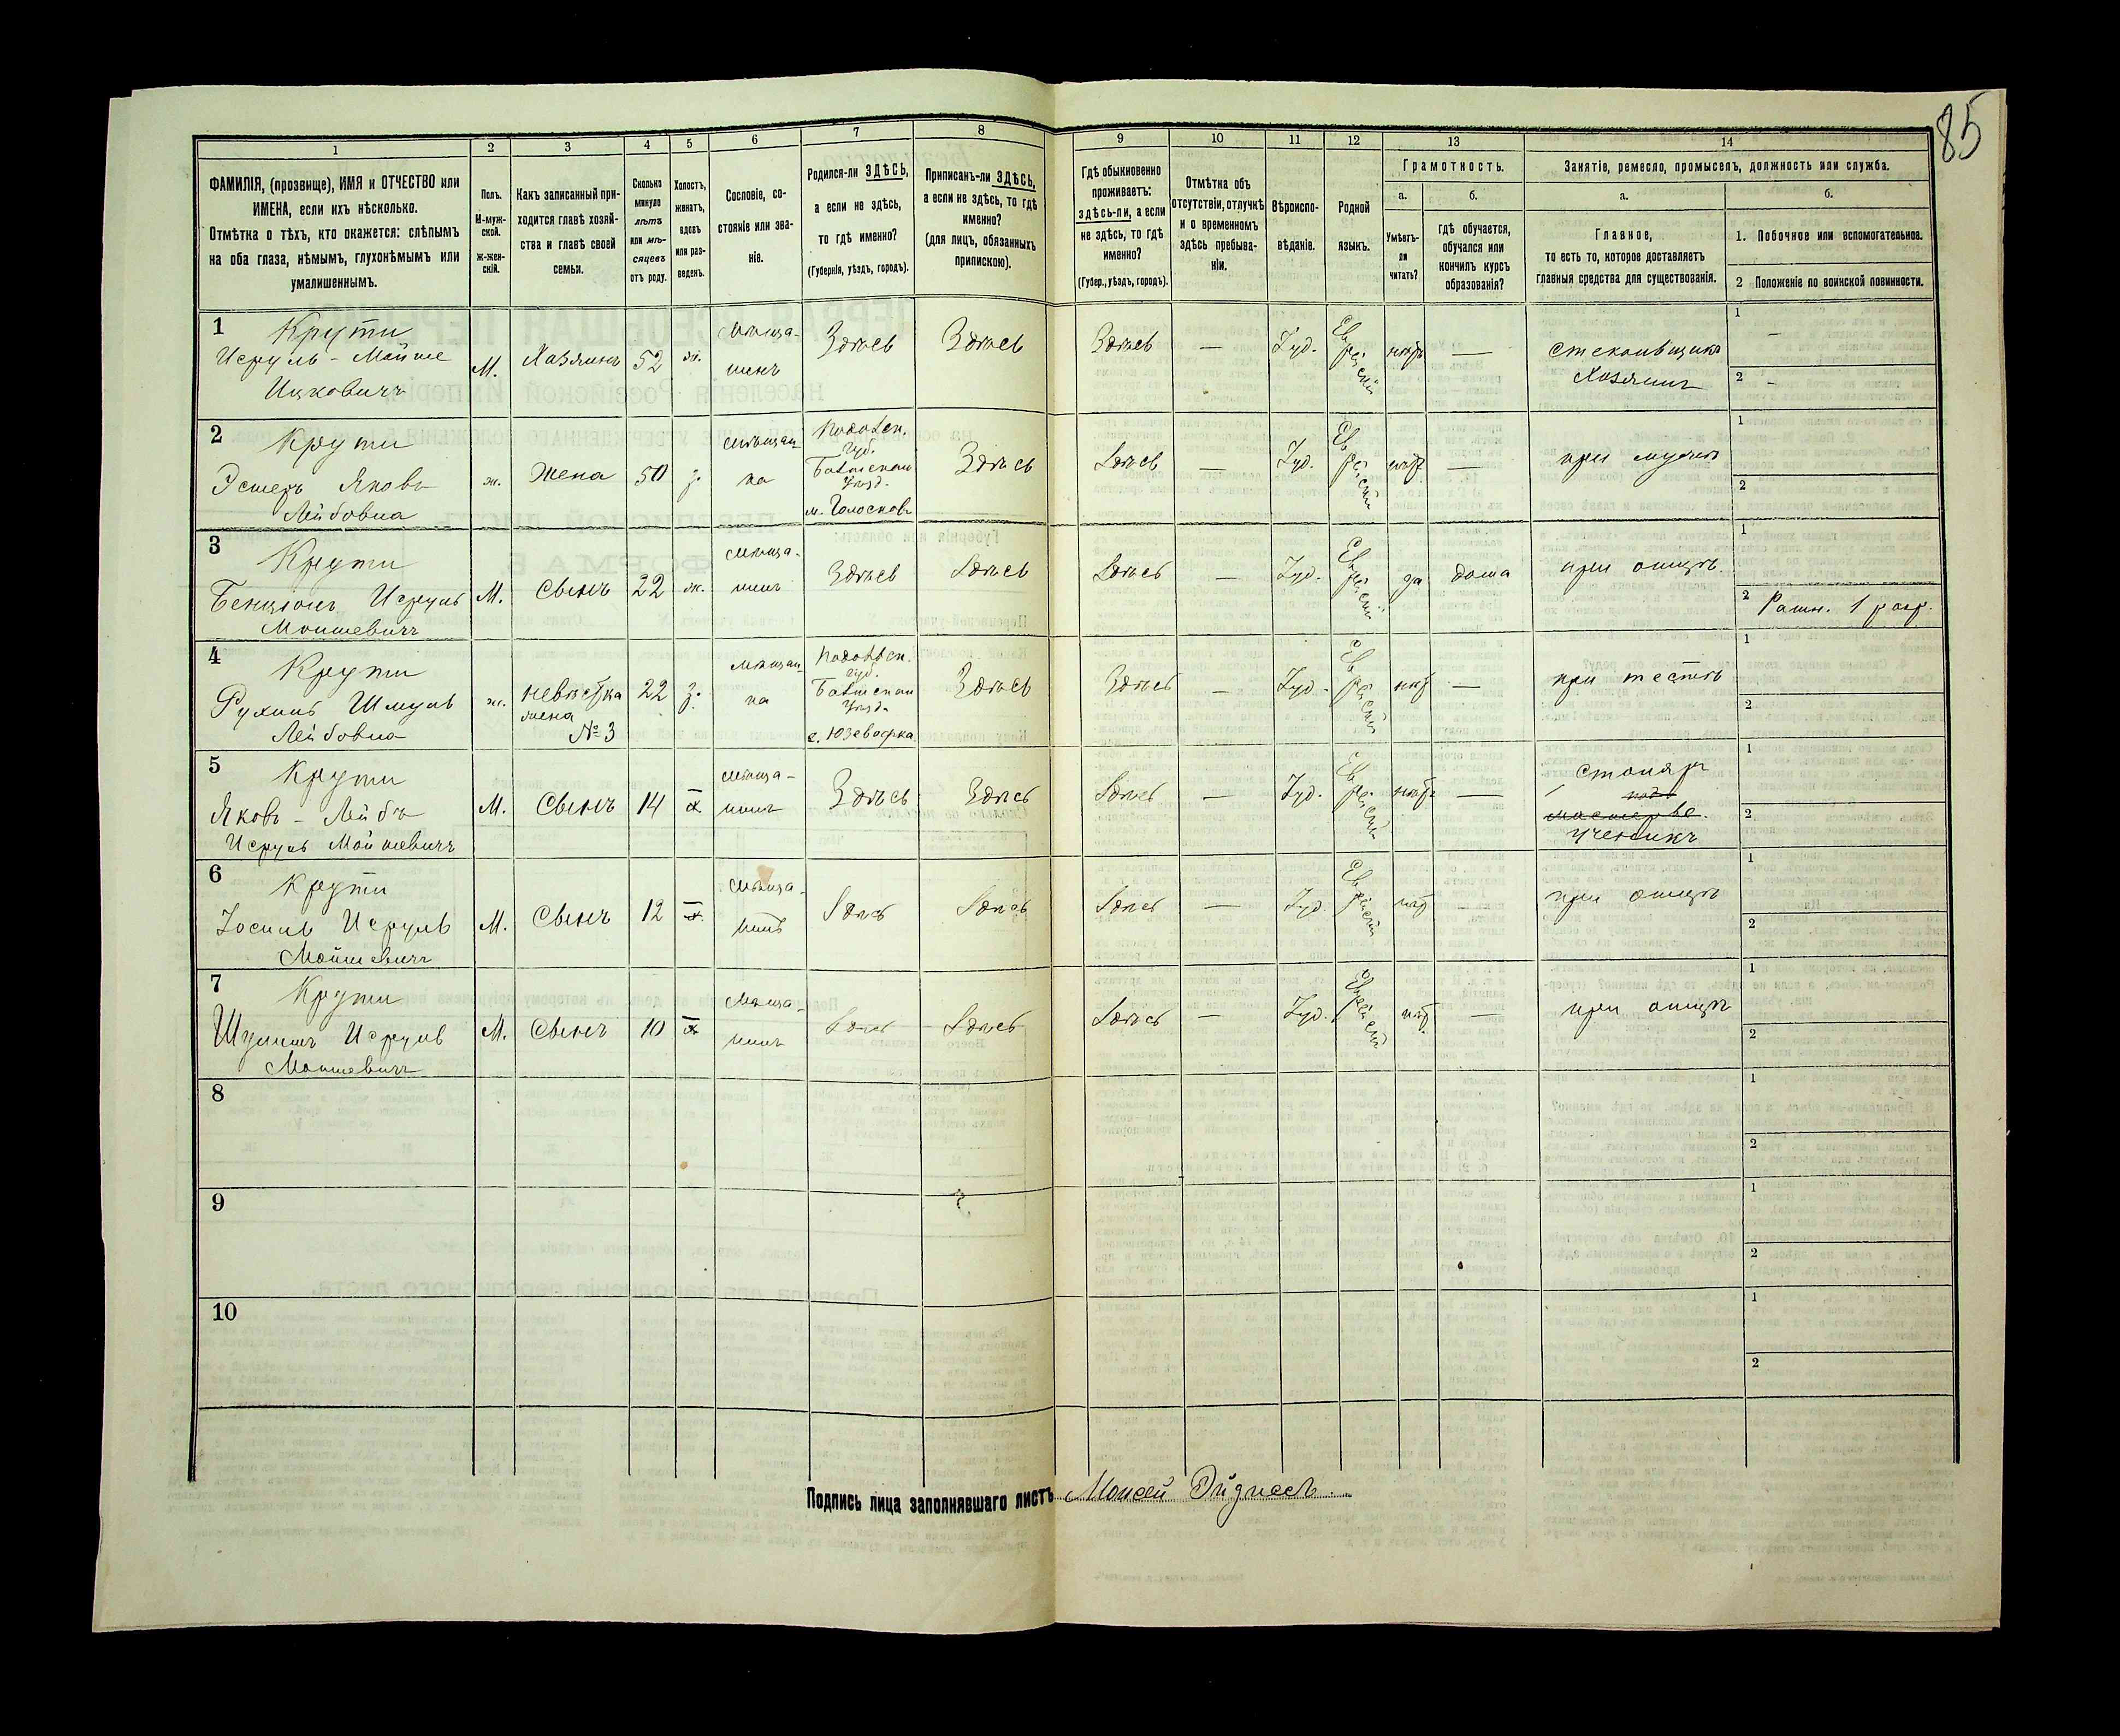 85
1 2 3 4 5 6 7 8 9 10 11 12 13 14
ФАМИЛІЯ, (прозвище), ИМЯ и ОТЧЕСТВО или
ИМЕНА, если ихъ нѣсколько.
Отмѣтка о тѣхъ, кто окажется: слѣпымъ
на оба глаза, нѣмымъ, глухонѣмымъ или
умалишеннымъ.
Полъ.
М-муж-
ской.
ж-жен-
скій.
Какъ записанный при-
ходится главѣ хозяй-
ства и главѣ своей
семьи.
Сколько
минуло
лѣтъ
или мѣ-
сяцевъ
отъ роду.
Холостъ,
женатъ,
вдовъ
или раз-
веденъ.
Сословіе, со-
стояніе или зва-
ніе.
Родился-ли ЗДѢСЬ,
а если не здѣсь,
то гдѣ именно?
(Губернія, уѣздъ, городъ).
Приписанъ-ли ЗДѢСЬ,
а если не здѣсь, то гдѣ
именно?
(для лицъ, обязанныхъ
припискою).
Гдѣ обыкновенно
проживаетъ:
здѣсь-ли, а если
не здѣсь, то гдѣ
именно?
(Губер., уѣздъ, городъ).
Отмѣтка объ
отсутствіи, отлучкѣ
и о временномъ
здѣсь пребыва-
ніи.
Вѣроиспо-
вѣданіе.
Родной
языкъ.
Грамотность.
а.
Умѣетъ-
ли
читать?
б.
гдѣ обучается,
обучался или
кончилъ курсъ
образованія?
Занятіе, ремесло, промыселъ, должность или служба.
а.
Главное,
то есть то, которое доставляетъ
главныя средства для существованія.
б.
1. Побочное или вспомогательное.
2 Положеніе по воинской повинности.
1 Крути
Исруль - Мойше
Ицковичъ
М.
Хозяинъ
52
ж.
мѣща-
нинъ
Здѣсь
Здѣсь
Здѣсь
—
Іуд.
Еврейскій
нѣтъ
—
стекольщикъ
Хозяинъ
1 –
2 –
2 Крути
Эстеръ Яковъ
Лейбовна
ж.
Жена
50
з.
мѣщан
ка
Подольск.
Губ.
Балтскаго
Уѣзд.
м. Голосковъ
Здѣсь
Здѣсь
—
Іуд.
Еврейскій
нѣтъ
—
при мужѣ
1
2
3 Крути
Бенціонъ Исруль
Мошевичъ
М.
Сынъ
22
ж.
мѣща-
нинъ
Здѣсь
Здѣсь
Здѣсь
—
Іуд.
Еврейскій
да
дома
при отцѣ.
1
2 Ратн. 1 разр.
4 Крути
Рухель Шмуль
Лейбовна
ж.
невѣстка
жена
№ 3
22
з.
мѣщан
ка
Подольск.
Губ.
Балтскаго
Уѣзда
Здѣсь
Здѣсь
—
Іуд.
Еврейскій
нѣт
—
при тестѣ
1
2
5 Крути
Яковъ - Лейбъ
Исруль Мойшевичъ
М.
Сынъ
14
х.
мѣща-
нинъ
Здѣсь
Здѣсь
Здѣсь
—
Іуд.
Еврейскій
нѣт.
—
столяръ
ученикъ
1
2
6 Крути
Іосиль Исруль
Мойшевичъ
М.
Сынъ
12
х.
мѣща-
нинъ
Здѣсь
Здѣсь
Здѣсь
—
Іуд.
Еврейскій
нѣт
—
при отцѣ
1
2
7 Крути
Исруль
Мошевичъ
М.
Сынъ
10
х
мѣща-
нинъ
Здѣсь
Здѣсь
Здѣсь
—
Іуд.
Еврейскій
нѣт.
—
при отцѣ
1
2
8
1
2
9
1
2
10
1
2
Подпись лица заполнявшаго листъ Моисей